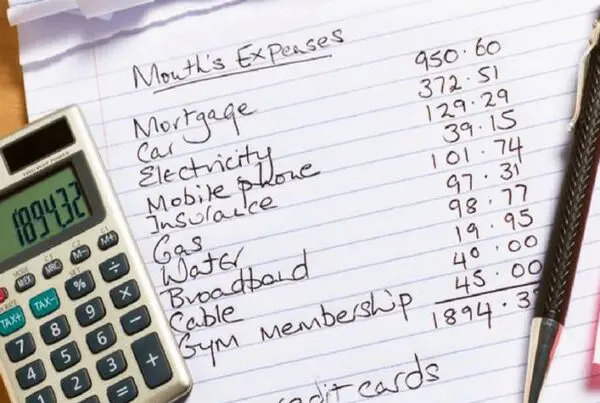 Month's Expenses
Mortgage 950.60
Car 372.51
Electricity 129.29
Mobile phone 39.15
Insurance 101.74
Gas 97.31
Water 98.77
Broadband 19.95
Cable 40.00
Gym Membership 45.00
1894.3
credit cards
1894.32
M- M+
% ÷
TAX+ TAX- 8 9 × 
7 5 6 −
4 2 3 +
1 =